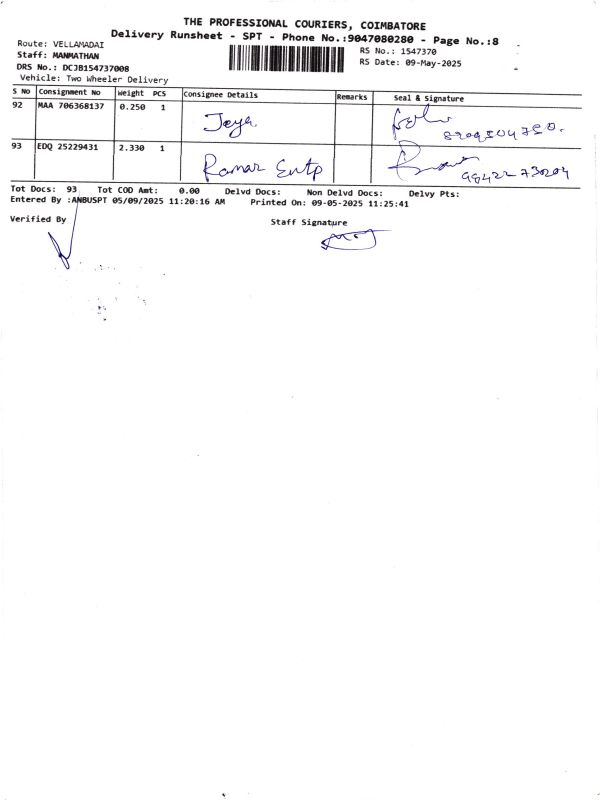 THE PROFESSIONAL COURIERS, COIMBATORE
Delivery Runsheet - SPT - Phone No.:9047080280 - Page No.:8
Route: VELLAMADAI
Staff: MANMATHAN
DRS No.: DCJB154737008
Vehicle: Two Wheeler Delivery
RS No.: 1547370
RS Date: 09-May-2025
S No Consignment No Weight PCS Consignee Details Remarks Seal & Signature
92 MAA 706368137 0.250 1 Jeya
93 EDQ 25229431 2.330 1 Raman Entp 98422-730204
Tot Docs: 93 Tot COD Amt: 0.00 Delvd Docs: Non Delvd Docs: Delvy Pts:
Entered By :ANBUSPT 05/09/2025 11:20:16 AM Printed On: 09-05-2025 11:25:41
Verified By Staff Signature